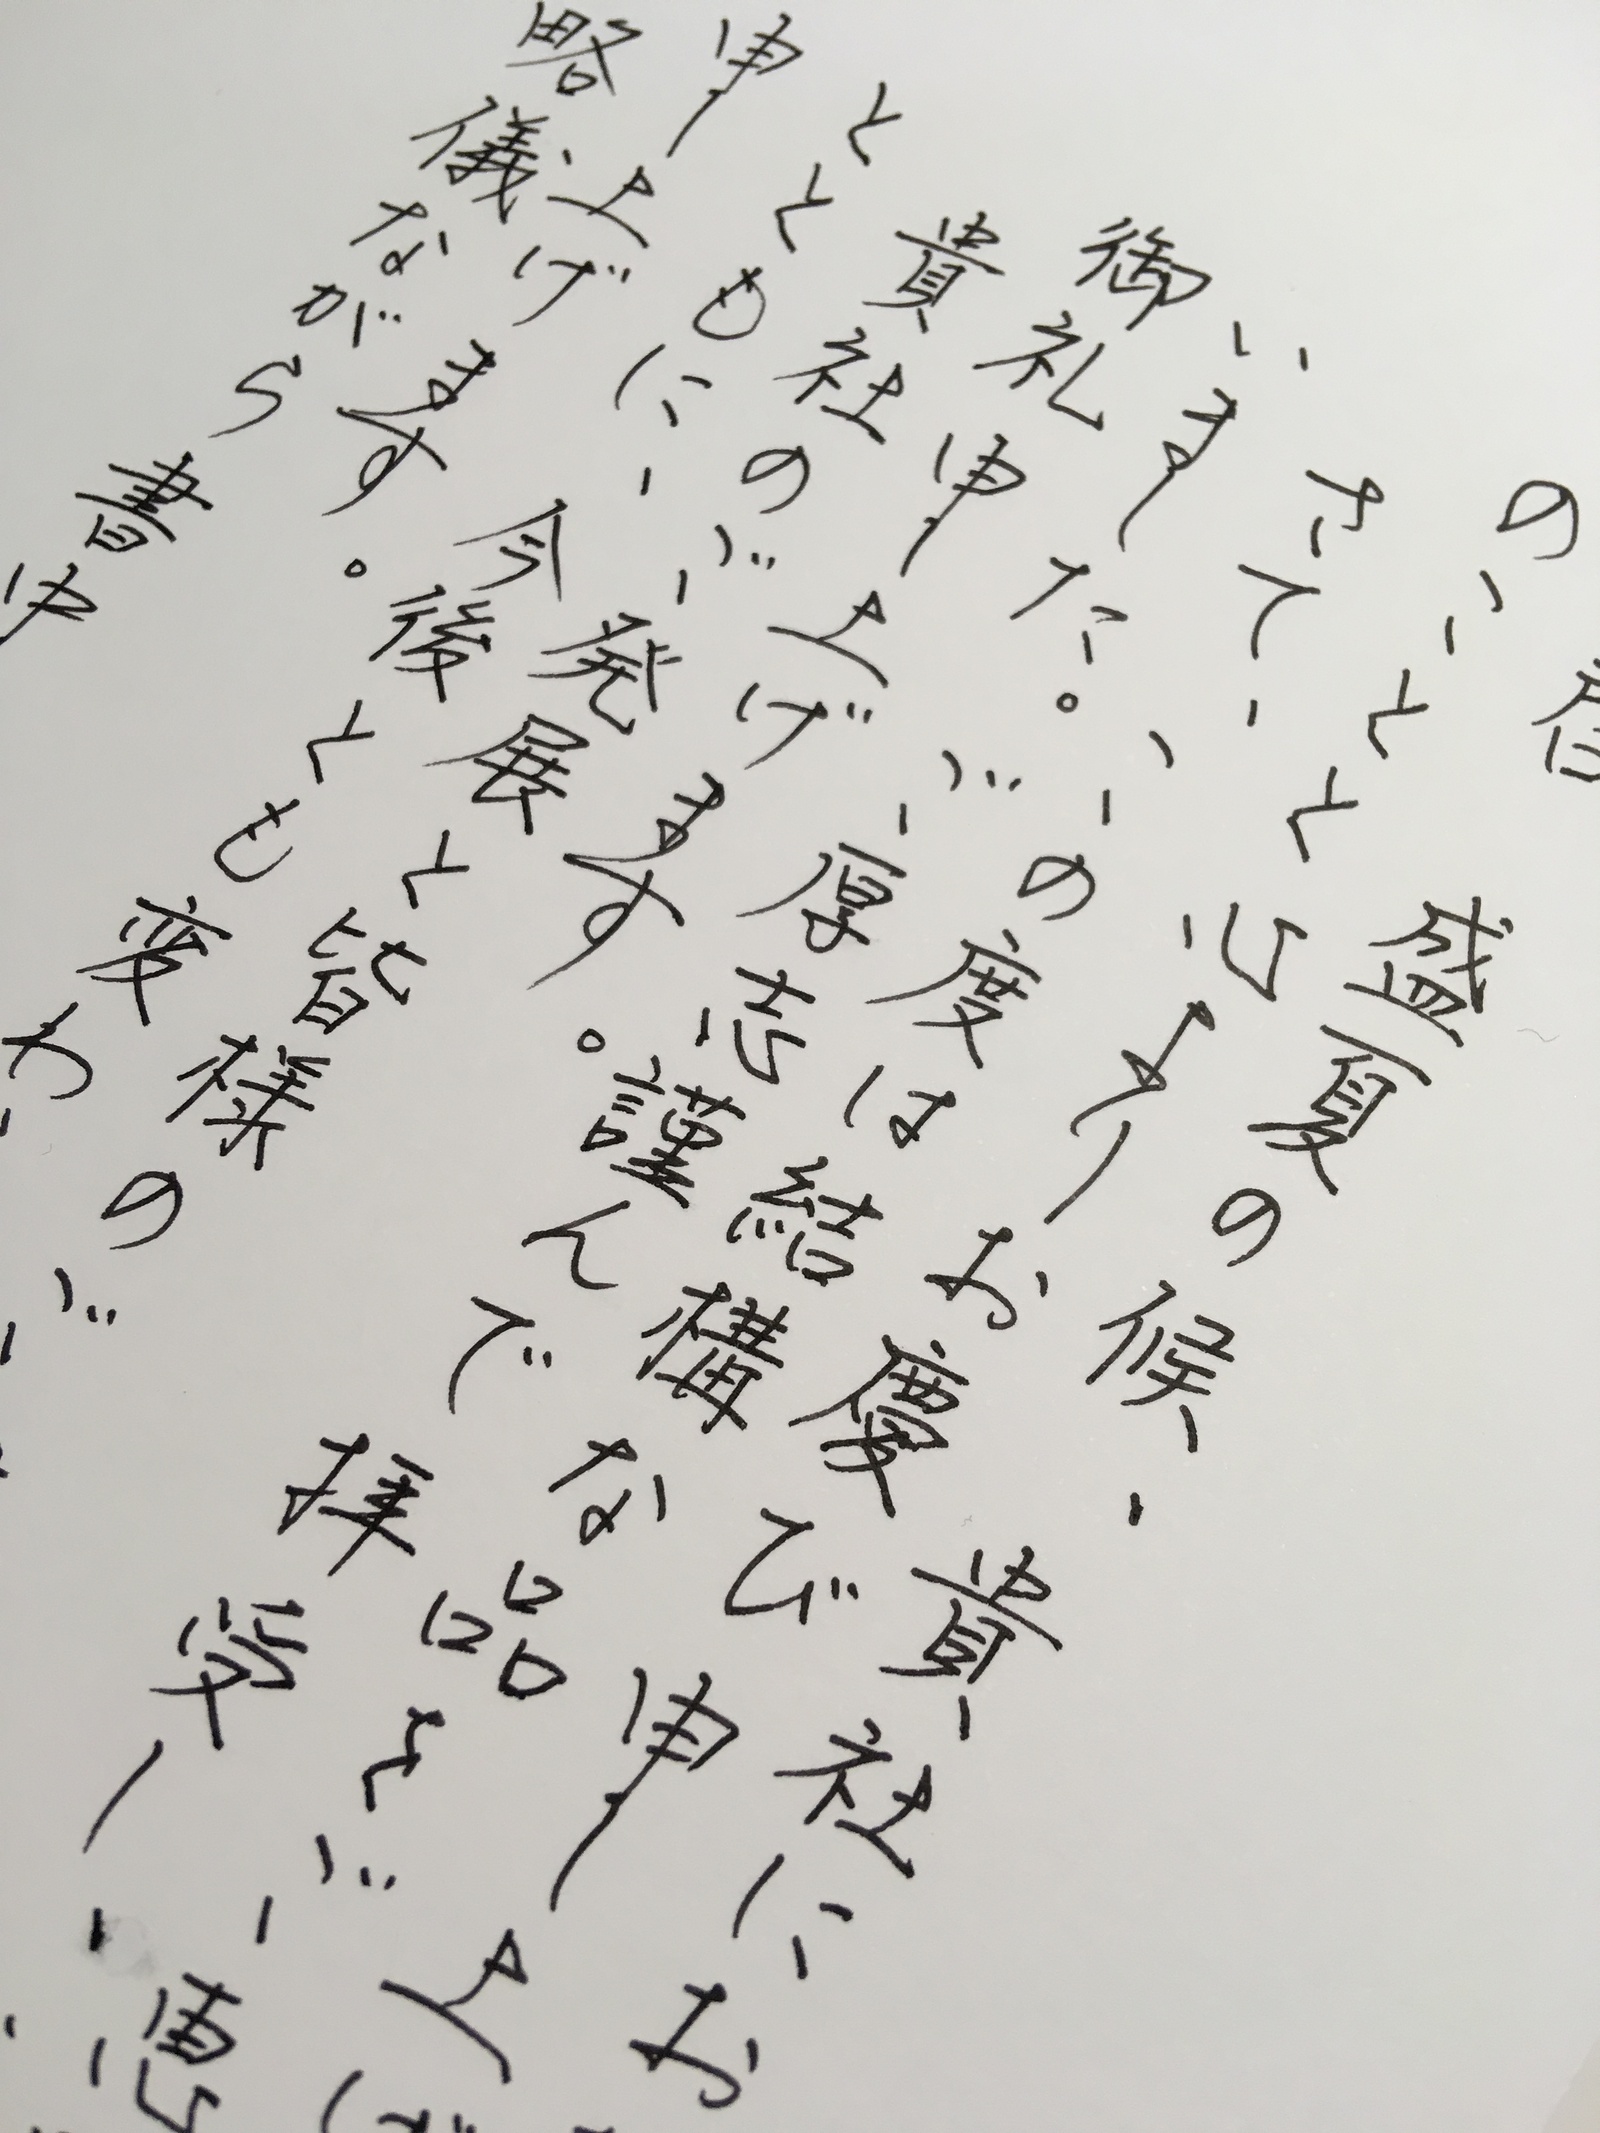 盛夏の候、貴社にお
のこととと心よりお慶び申し上げ
さて、この度は結構な品をご恵
いました。ご厚志謹んで拝受し、
御礼申し上げます。
貴社のご発展と皆様のご
とともに、今後とも変わ
申し上げます。
略儀ながら書中